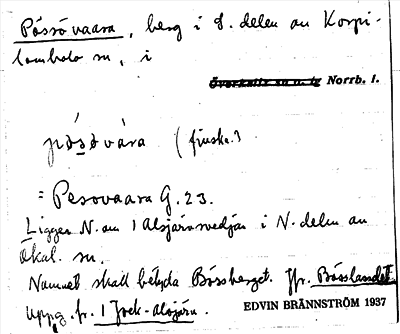 Pössövaara, berg i S. delen av Korpi-
lombolo sn, i
Överkalix sn o. tg Norrb. l.
pösövára (finska.)
= Pesovaara G. 23.
Ligger N. om 1 Alsjärnsvedjan i N. delen av
Ökal. sn.
Namnet skall betyda Bössberget. Jfr. Bösslandet
Uppg. fr. 1 Joek-Alsjärn.
EDVIN BRÄNNSTRÖM 1937